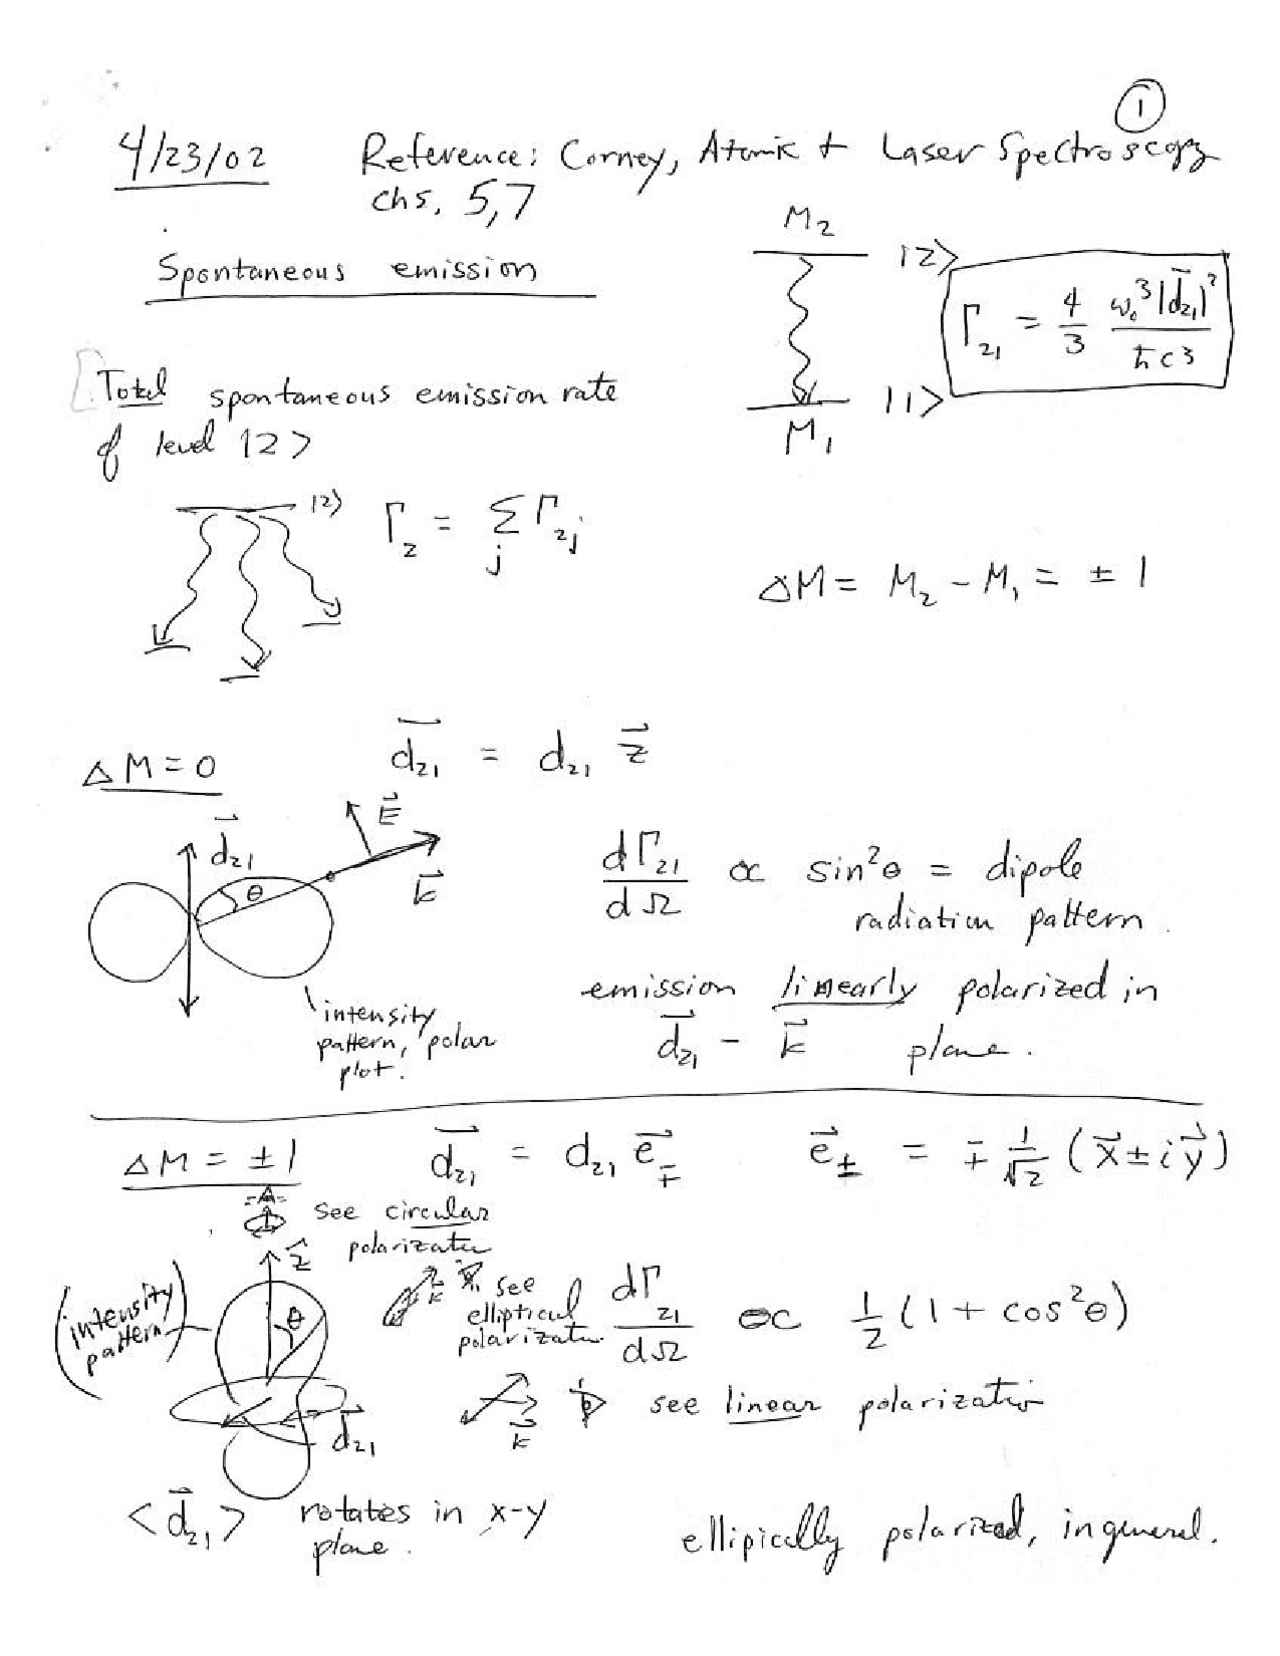 ①
4/23/02 Reference: Corney, Atomic + Laser Spectroscopy
chs. 5,7
M₂
Spontaneous emission
|2>
Γ₂₁ = 4/3 ω₀³|d⃗₂₁|²/ħc³
Total spontaneous emission rate
|1>
of level |2>
M₁
|2> Γ₂ = Σ_j Γ₂j
ΔM = M₂ - M₁ = ± 1
ΔM = 0 d⃗₂₁ = d₂₁ z⃗
E⃗
d⃗₂₁
θ
k⃗
dΓ₂₁/dΩ ∝ sin²θ = dipole
radiation pattern.
emission linearly polarized in
d⃗₂₁ - k⃗ plane.
intensity
pattern, polar
plot.
ΔM = ±1 d⃗₂₁ = d₂₁ e⃗∓ e⃗± = ∓ 1/√2 (x⃗ ± i y⃗)
see circular
polarization
z⃗
(intensity
pattern)
θ
k⃗
see
elliptical
polarization
dΓ₂₁/dΩ ∝ ½(1 + cos²θ)
k⃗
see linear polarization
d⃗₂₁
<d⃗₂₁> rotates in x-y
plane.
ellipically polarized, in general.